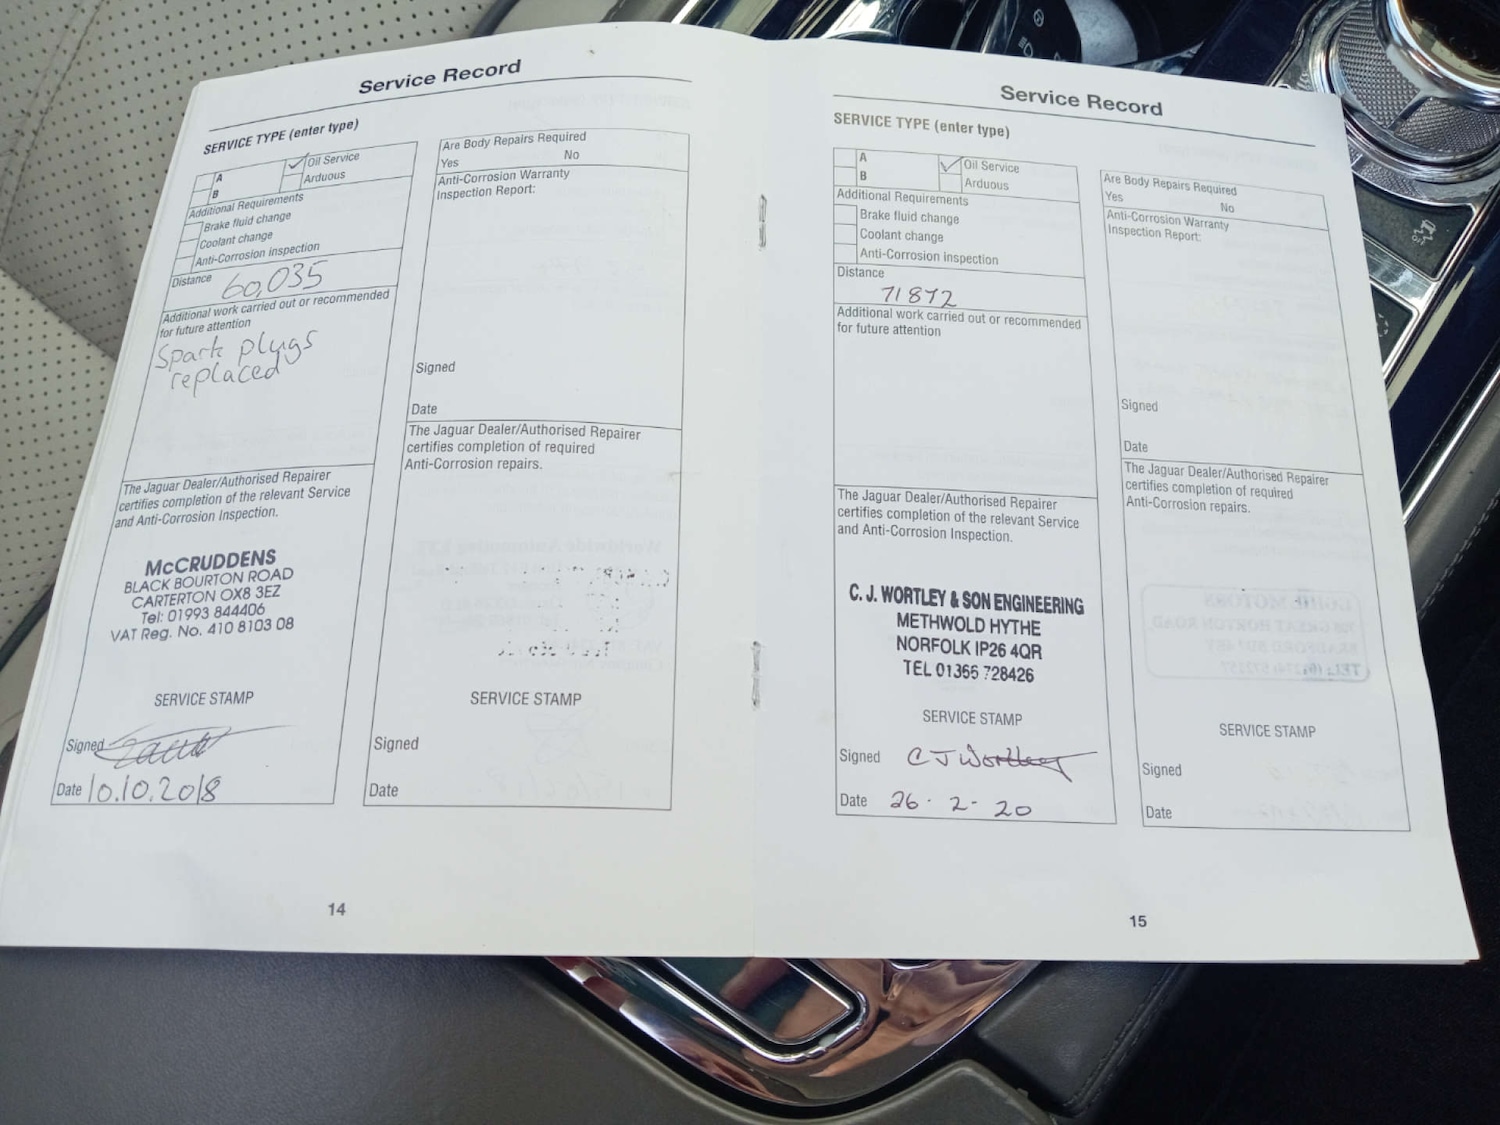 Service Record
SERVICE TYPE (enter type)
A
B
Oil Service
Arduous
Additional Requirements
Brake fluid change
Coolant change
Anti-Corrosion inspection
Distance
60,035
Additional work carried out or recommended
for future attention
Spark plugs
replaced
The Jaguar Dealer/Authorised Repairer
certifies completion of the relevant Service
and Anti-Corrosion Inspection.
McCRUDDENS
BLACK BOURTON ROAD
CARTERTON OX8 3EZ
Tel: 01993 844406
VAT Reg. No. 410 8103 08
SERVICE STAMP
Signed
Date 10.10.2018
Are Body Repairs Required
Yes No
Anti-Corrosion Warranty
Inspection Report:
Signed
Date
The Jaguar Dealer/Authorised Repairer
certifies completion of required
Anti-Corrosion repairs.
SERVICE STAMP
Signed
Date
14
Service Record
SERVICE TYPE (enter type)
A
B
Oil Service
Arduous
Additional Requirements
Brake fluid change
Coolant change
Anti-Corrosion inspection
Distance
71872
Additional work carried out or recommended
for future attention
The Jaguar Dealer/Authorised Repairer
certifies completion of the relevant Service
and Anti-Corrosion Inspection.
C. J. WORTLEY & SON ENGINEERING
METHWOLD HYTHE
NORFOLK IP26 4QR
TEL 01366 728426
SERVICE STAMP
Signed C J Wortley
Date 26 - 2 - 20
Are Body Repairs Required
Yes No
Anti-Corrosion Warranty
Inspection Report:
Signed
Date
The Jaguar Dealer/Authorised Repairer
certifies completion of required
Anti-Corrosion repairs.
SERVICE STAMP
Signed
Date
15